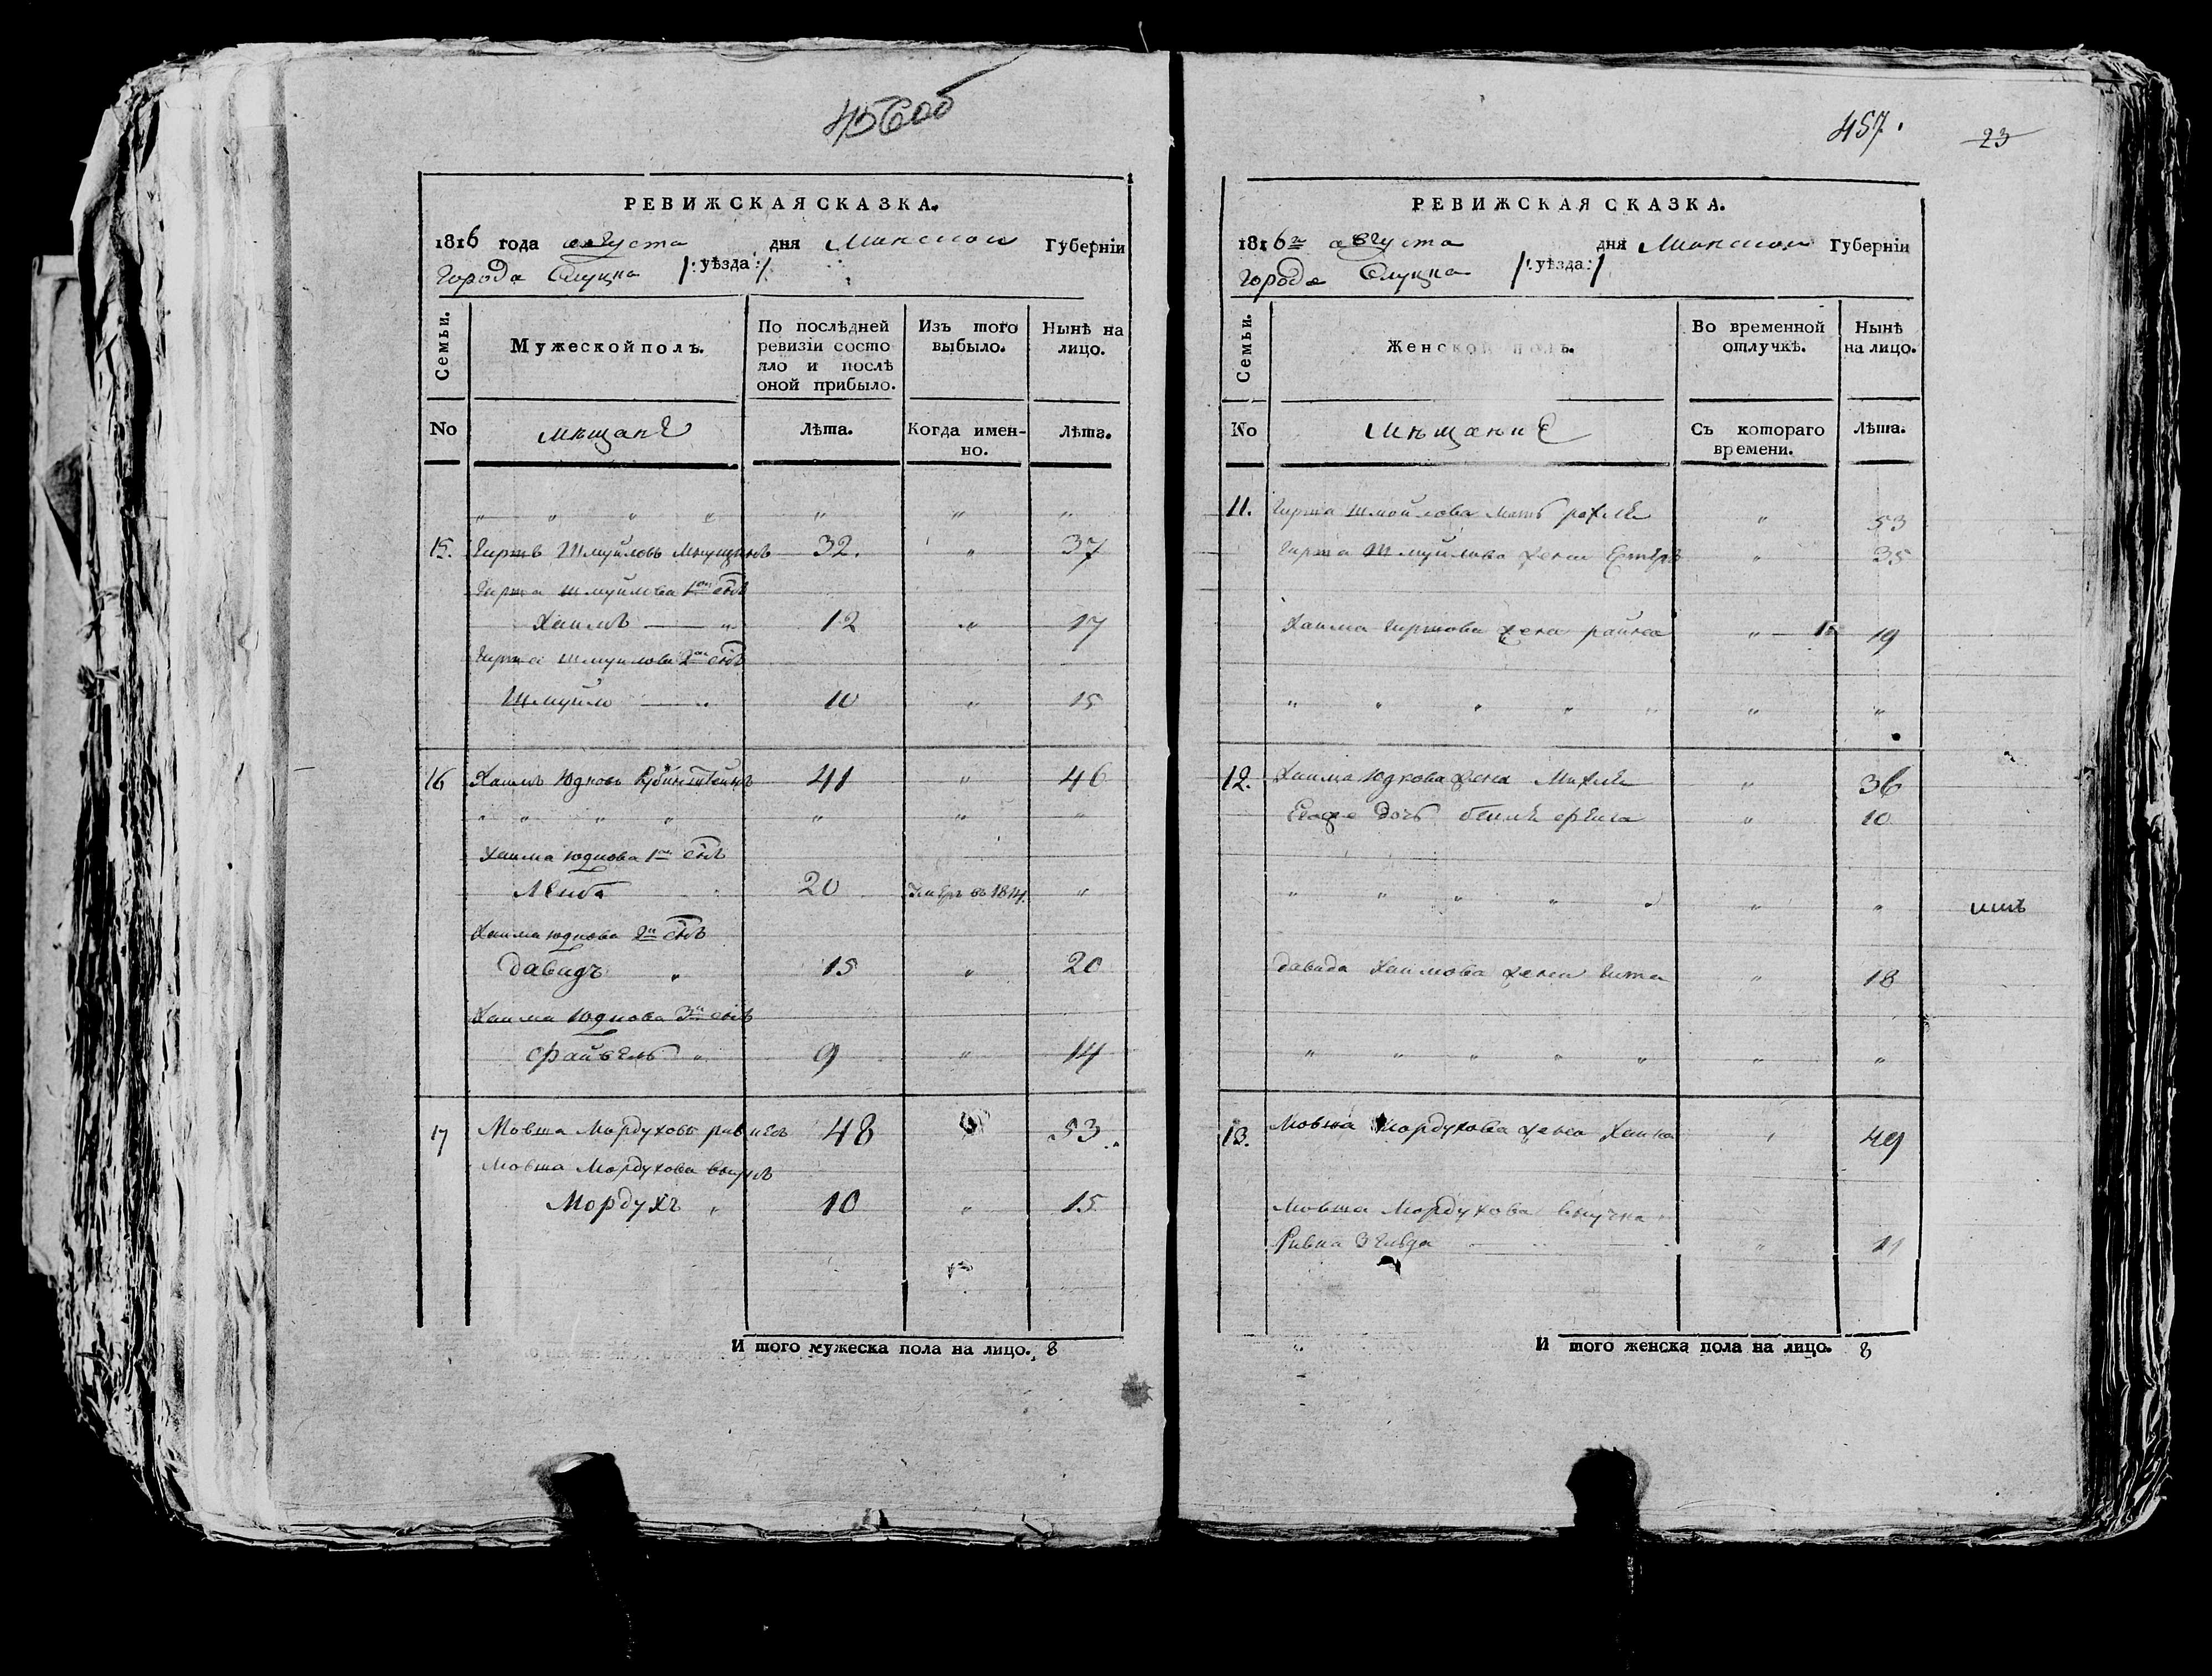 456об
РЕВИЖСКАЯ СКАЗКА.
1816 года августа дня Минской Губерніи
города Слуцка /:уѣзда:/
Семьи.
Мужеской полъ.
По послѣдней ревизіи состояло и послѣ оной прибыло.
Изъ того выбыло.
Нынѣ на лицо.
No
мѣщане
Лѣта.
Когда именно.
Лѣта.
" " " " " " "
15. Гиршъ Шмуйловъ 32. " 37
Гирша Шмуйлова 1ой сынъ
Хаимъ " 12 " 17
Гирша Шмуйлова 2ой сынъ
Шмуйло " 10 " 15
16 Хаимъ Юдковъ Рубинштейнъ 41 " 46
" " " " " " "
Хаима Юдкова 1й сынъ
Лейба 20 въ 1814. "
Хаима Юдкова 2й сынъ
Давидъ " 15 " 20
Хаима Юдкова 3й сынъ
Файвель " 9 " 14
17 Мовша Мордуховъ 48 53
Мовша Мордухова внукъ
Мордухъ " 10 " 15
И того мужеска пола на лицо. 8
457.
23
РЕВИЖСКАЯ СКАЗКА.
1816го августа дня Минской Губерніи
города Слуцка /:уѣзда:/
Семьи.
Женской полъ.
Во временной отлучкѣ.
Нынѣ на лицо.
No
мѣщание
Съ котораго времени.
Лѣта.
11. Гирша Шмойлова мать рохля " 53
Гирша Шмуйлова жена Естеръ " 35
Хаима Гиршова жена райна " 19
" " " " " " "
12. Хаима Юдкова жена Михля " 36
Егоже дочь " 10
" " " " " " "
Давида Хаимова жена Гита " 18
" " " " " " "
13. Мовша Мордухова жена Хаина " 49
Мовша Мордухова внучка
Ривка Зельда " 11
И того женска пола на лицо. 8